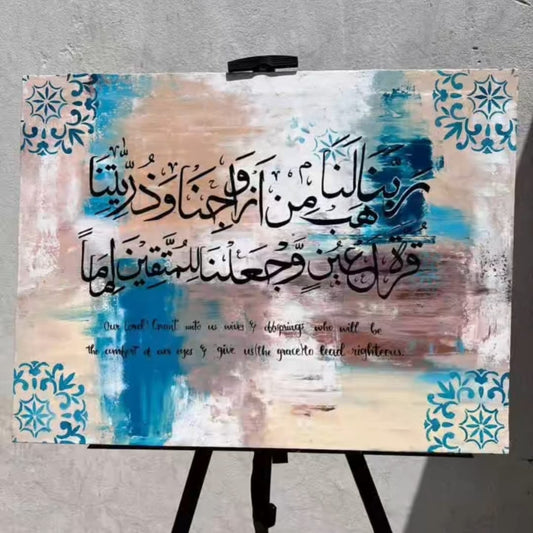 رَبَّنَا هَبْ لَنَا مِنْ أَزْوَاجِنَا وَذُرِّيَّتِنَا
قُرَّةَ أَعْيُنٍ وَّجَعَلْنَا لِلْمُتَّقِينَ إِمَاماً
Our Lord! Grant unto us wives & offsprings who will be
the comfort of our eyes & give us(the grace)to lead righteous.